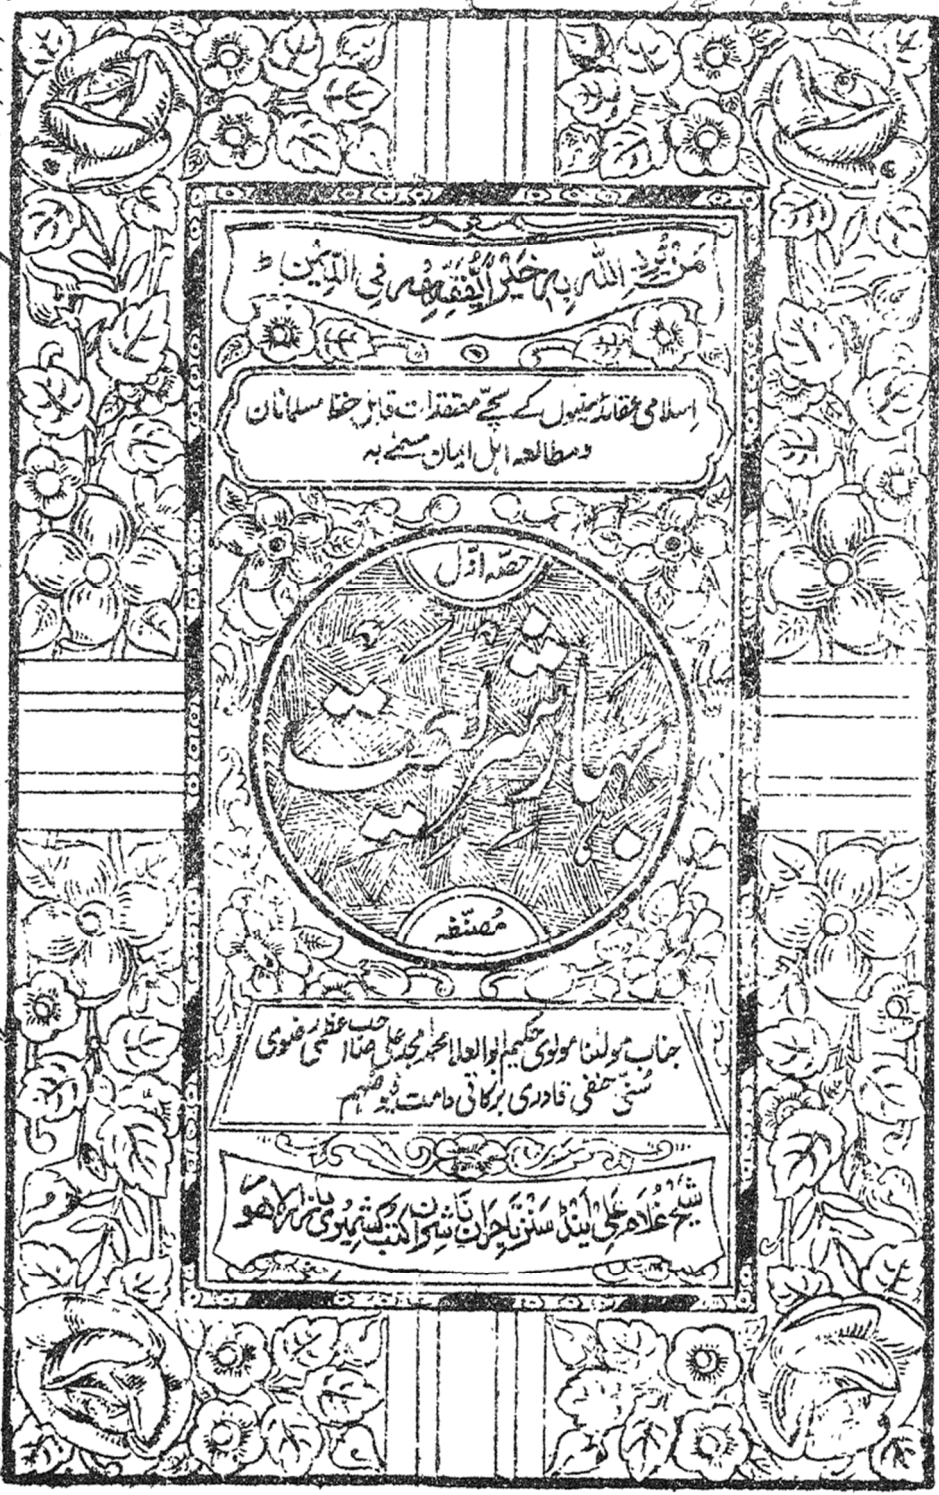 مَنْ یُّرِدِ اللّٰهُ بِهٖ خَیْرًا یُّفَقِّهْهُ فِی الدِّیْنِ ؕ
اسلامی عقائد سنیوں کے سچے معتقدات قابل حفظ مسلمانان
و مطالعہ اہل ایمان مسمّٰے بہ
حصہ اوّل
بہار شریعت
مُصنّفہ
جناب مولٰنا مولوی حکیم ابوالعلا محمد امجد علی صاحب اعظمی رضوی
سُنّی حنفی قادری برکاتی دامت فیوضہم
شیخ غلام علی اینڈ سنز تاجران ناشران کتب کشمیری بازار لاہور